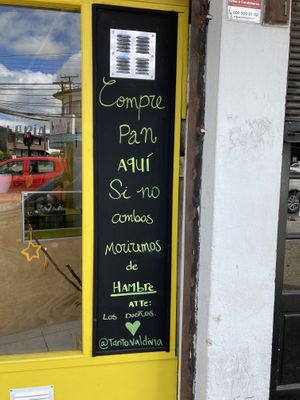 Compre
Pan
AQUÍ
Si no
ambos
moriremos
de
HAMBRE
ATTE:
LOS DUEÑOS.
@TantoValdivia
600 500 01 02